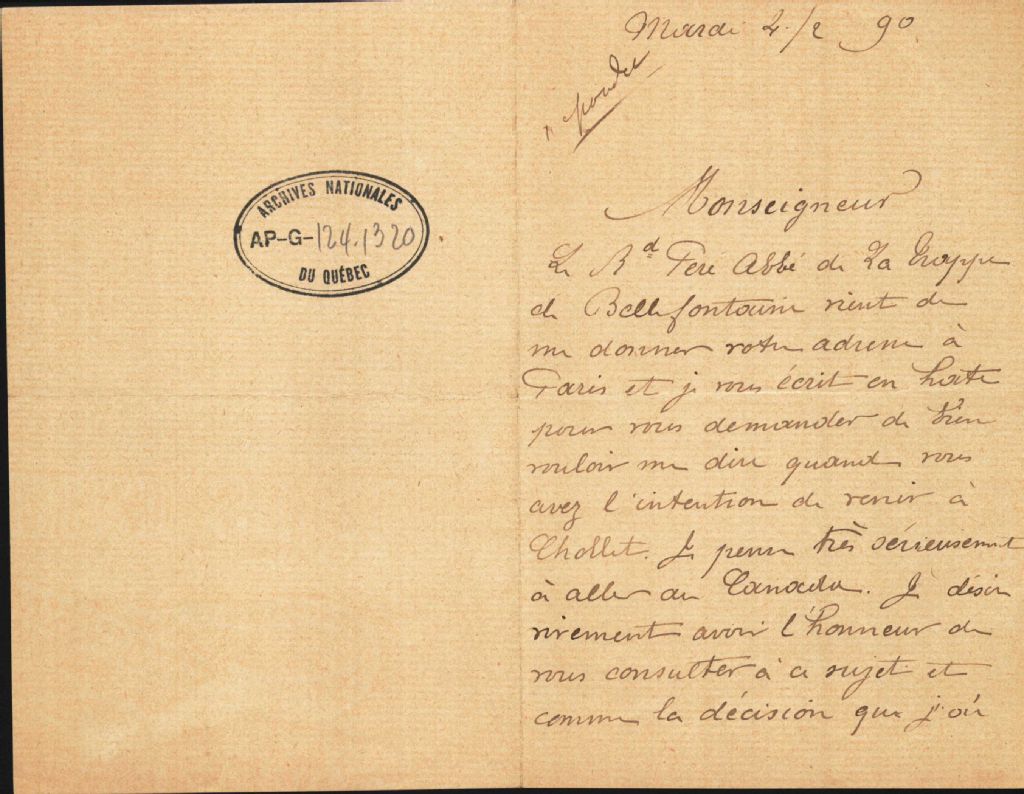 ARCHIVES NATIONALES
AP-G-124.1320
DU QUÉBEC
Mardi 2/2 90
Monseigneur
Le Rd Père Abbé de La Trappe
de Bellefontaine vient de
me donner votre adresse à
Paris et je vous écrit en hate
pour vous demander de bien
vouloir me dire quand vous
avez l'intention de venir à
Chollet. Je pense très sérieusement
à aller au Canada. Je désire
vivement avoir l'honneur de
vous consulter à ce sujet et
comme la décision que j'ai